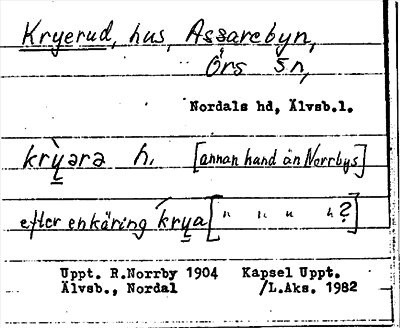 Kryerud, hus, Assarebyn,
Örs sn,
Nordals hd, Älvsb.l.
krỳara h. [annan hand än Norrbys]
efter enkäring krya [ " " " " ? ]
Uppt. R.Norrby 1904 Kapsel Uppt.
Älvsb., Nordal /L.Aks. 1982